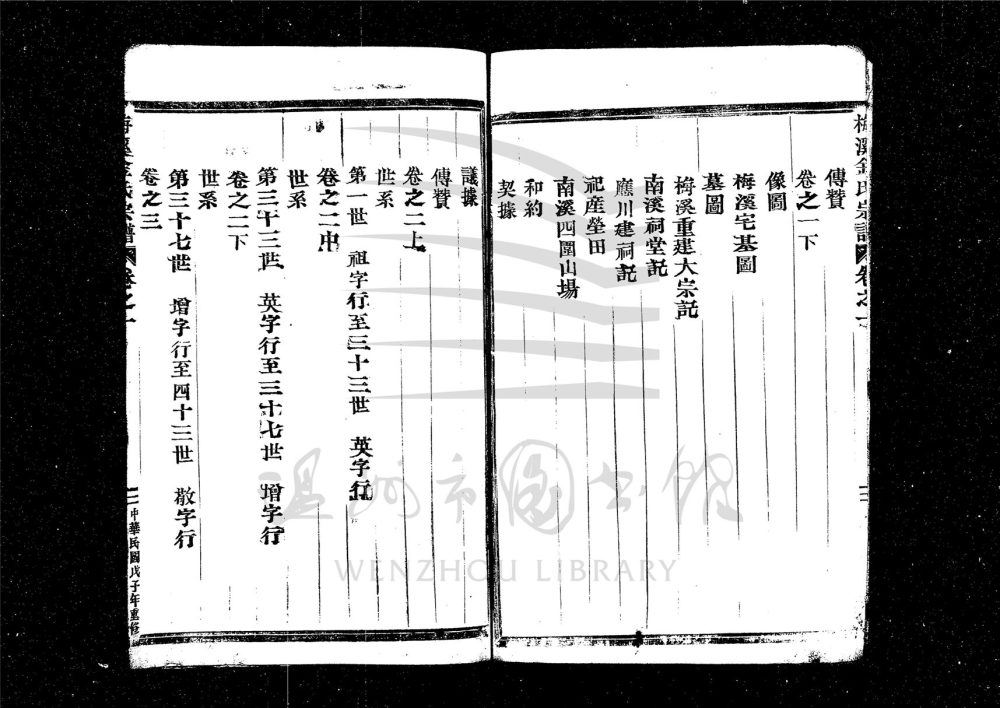 梅溪金氏宗譜 卷之一
傳贊
卷之一下
像圖
梅溪宅基圖
墓圖
梅溪重建大宗記
南溪祠堂記
應川建祠記
祀産塋田
南溪四圍山場
和約
契據
議據
傳贊
卷之二上
世系
第一世 祖字行至三十三世 英字行
卷之二中
世系
第三十三世 英字行至三十七世 增字行
卷之二下
世系
第三十七世 增字行至四十三世 敬字行
卷之三
中華民國戊子年重修
温州市图书馆
WENZHOU LIBRARY